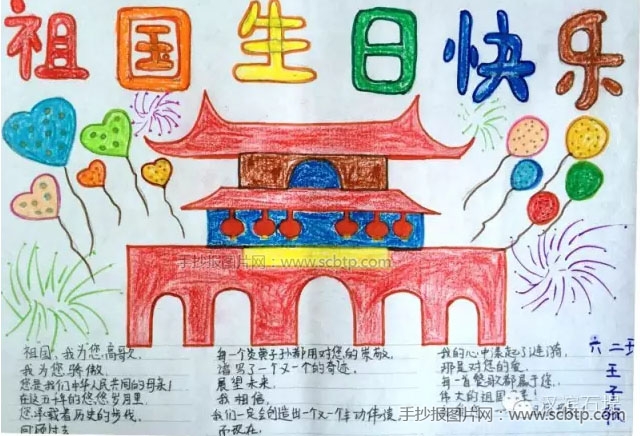 祖国生日快乐
手抄报图片网：www.scbtp.com
祖国，我为您高歌，
我为您骄傲，
您是我们中华人民共同的母亲！
在这五十年的您您岁月里
您承载着历史的步伐，
回顾过去
每一个炎黄子孙都用对您的崇敬，
谱写了一个又一个的奇迹，
展望未来，
我相信，
我们一定会创造出一个又一个丰功伟绩
我的心中荡起了涟漪，
那是对您的爱，
每一首赞歌都属于您，
伟大的祖国
手抄报图片网：www.scbtp.com
六二班
王子